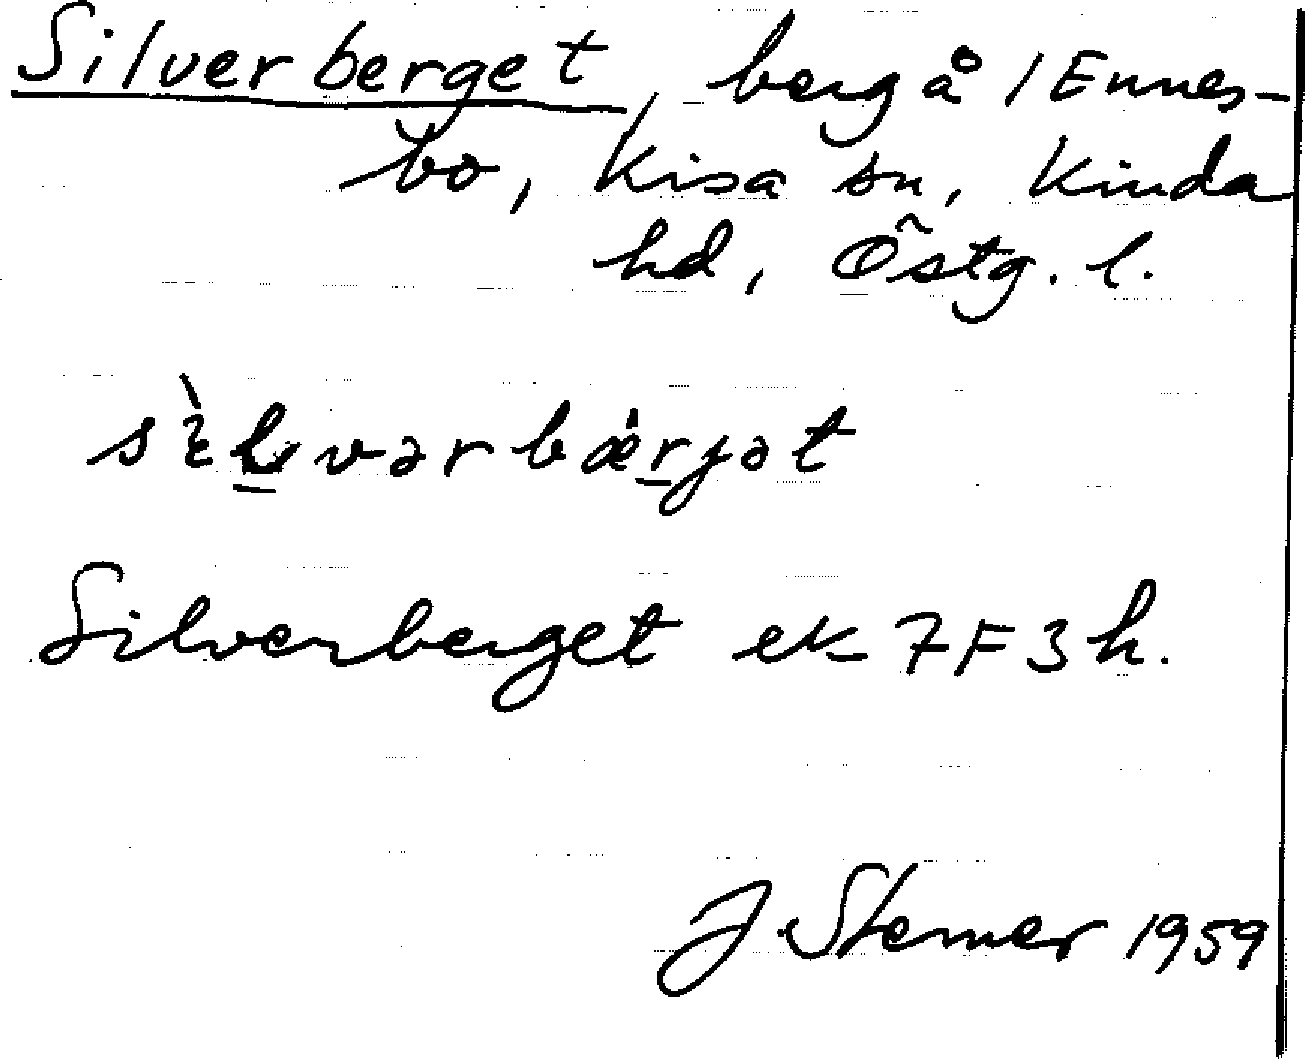 Silverberget, berg å 1 Ennes-
bo, Kisa sn, Kinda
hd, Östg. l.
Silverberget ek 7F3h.
J Sterner 1959